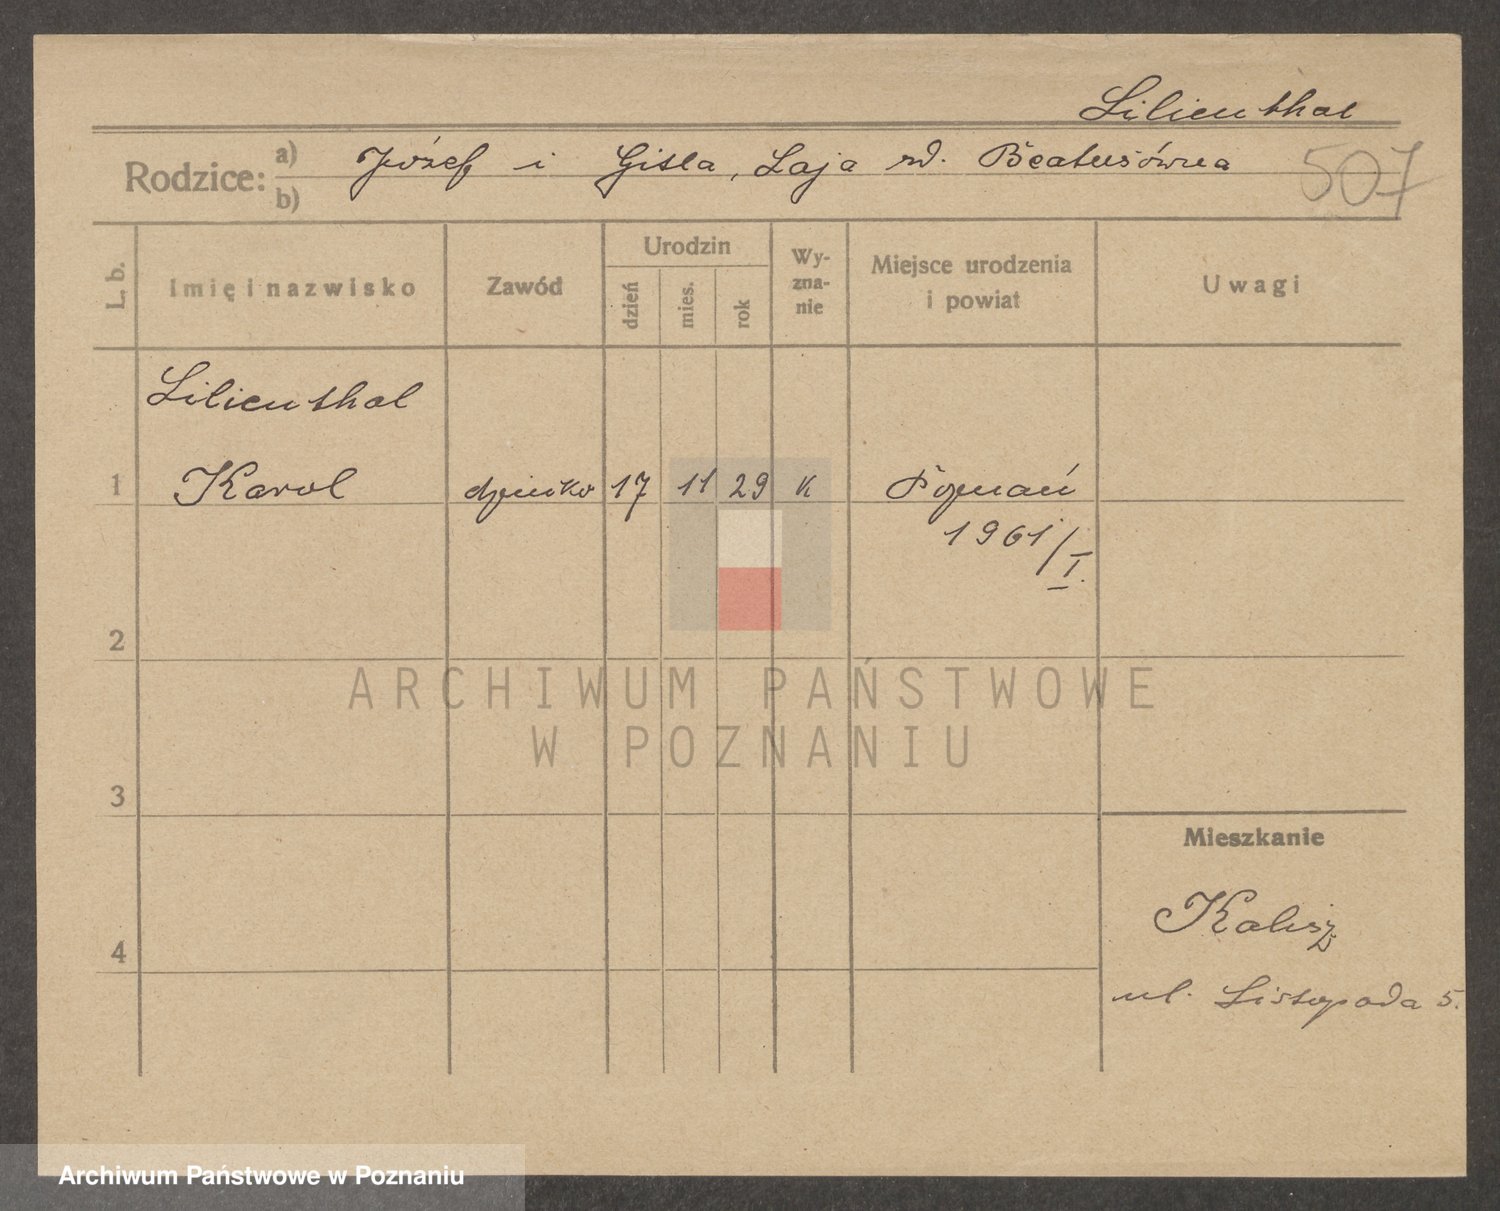 Lilienthal
Rodzice: a) Józef i Gisla, Laja zd. Beatusówna
b)
507
L. b. Imię i nazwisko Zawód Urodzin dzień mies. rok Wy-zna-nie Miejsce urodzenia i powiat Uwagi
Lilienthal
1 Karol dziecko 17 11 29 K Poznań
1961/I.
2
ARCHIWUM PAŃSTWOWE
W POZNANIU
3
Mieszkanie
Kalisz
4
ul. Listopada 5.
Archiwum Państwowe w Poznaniu